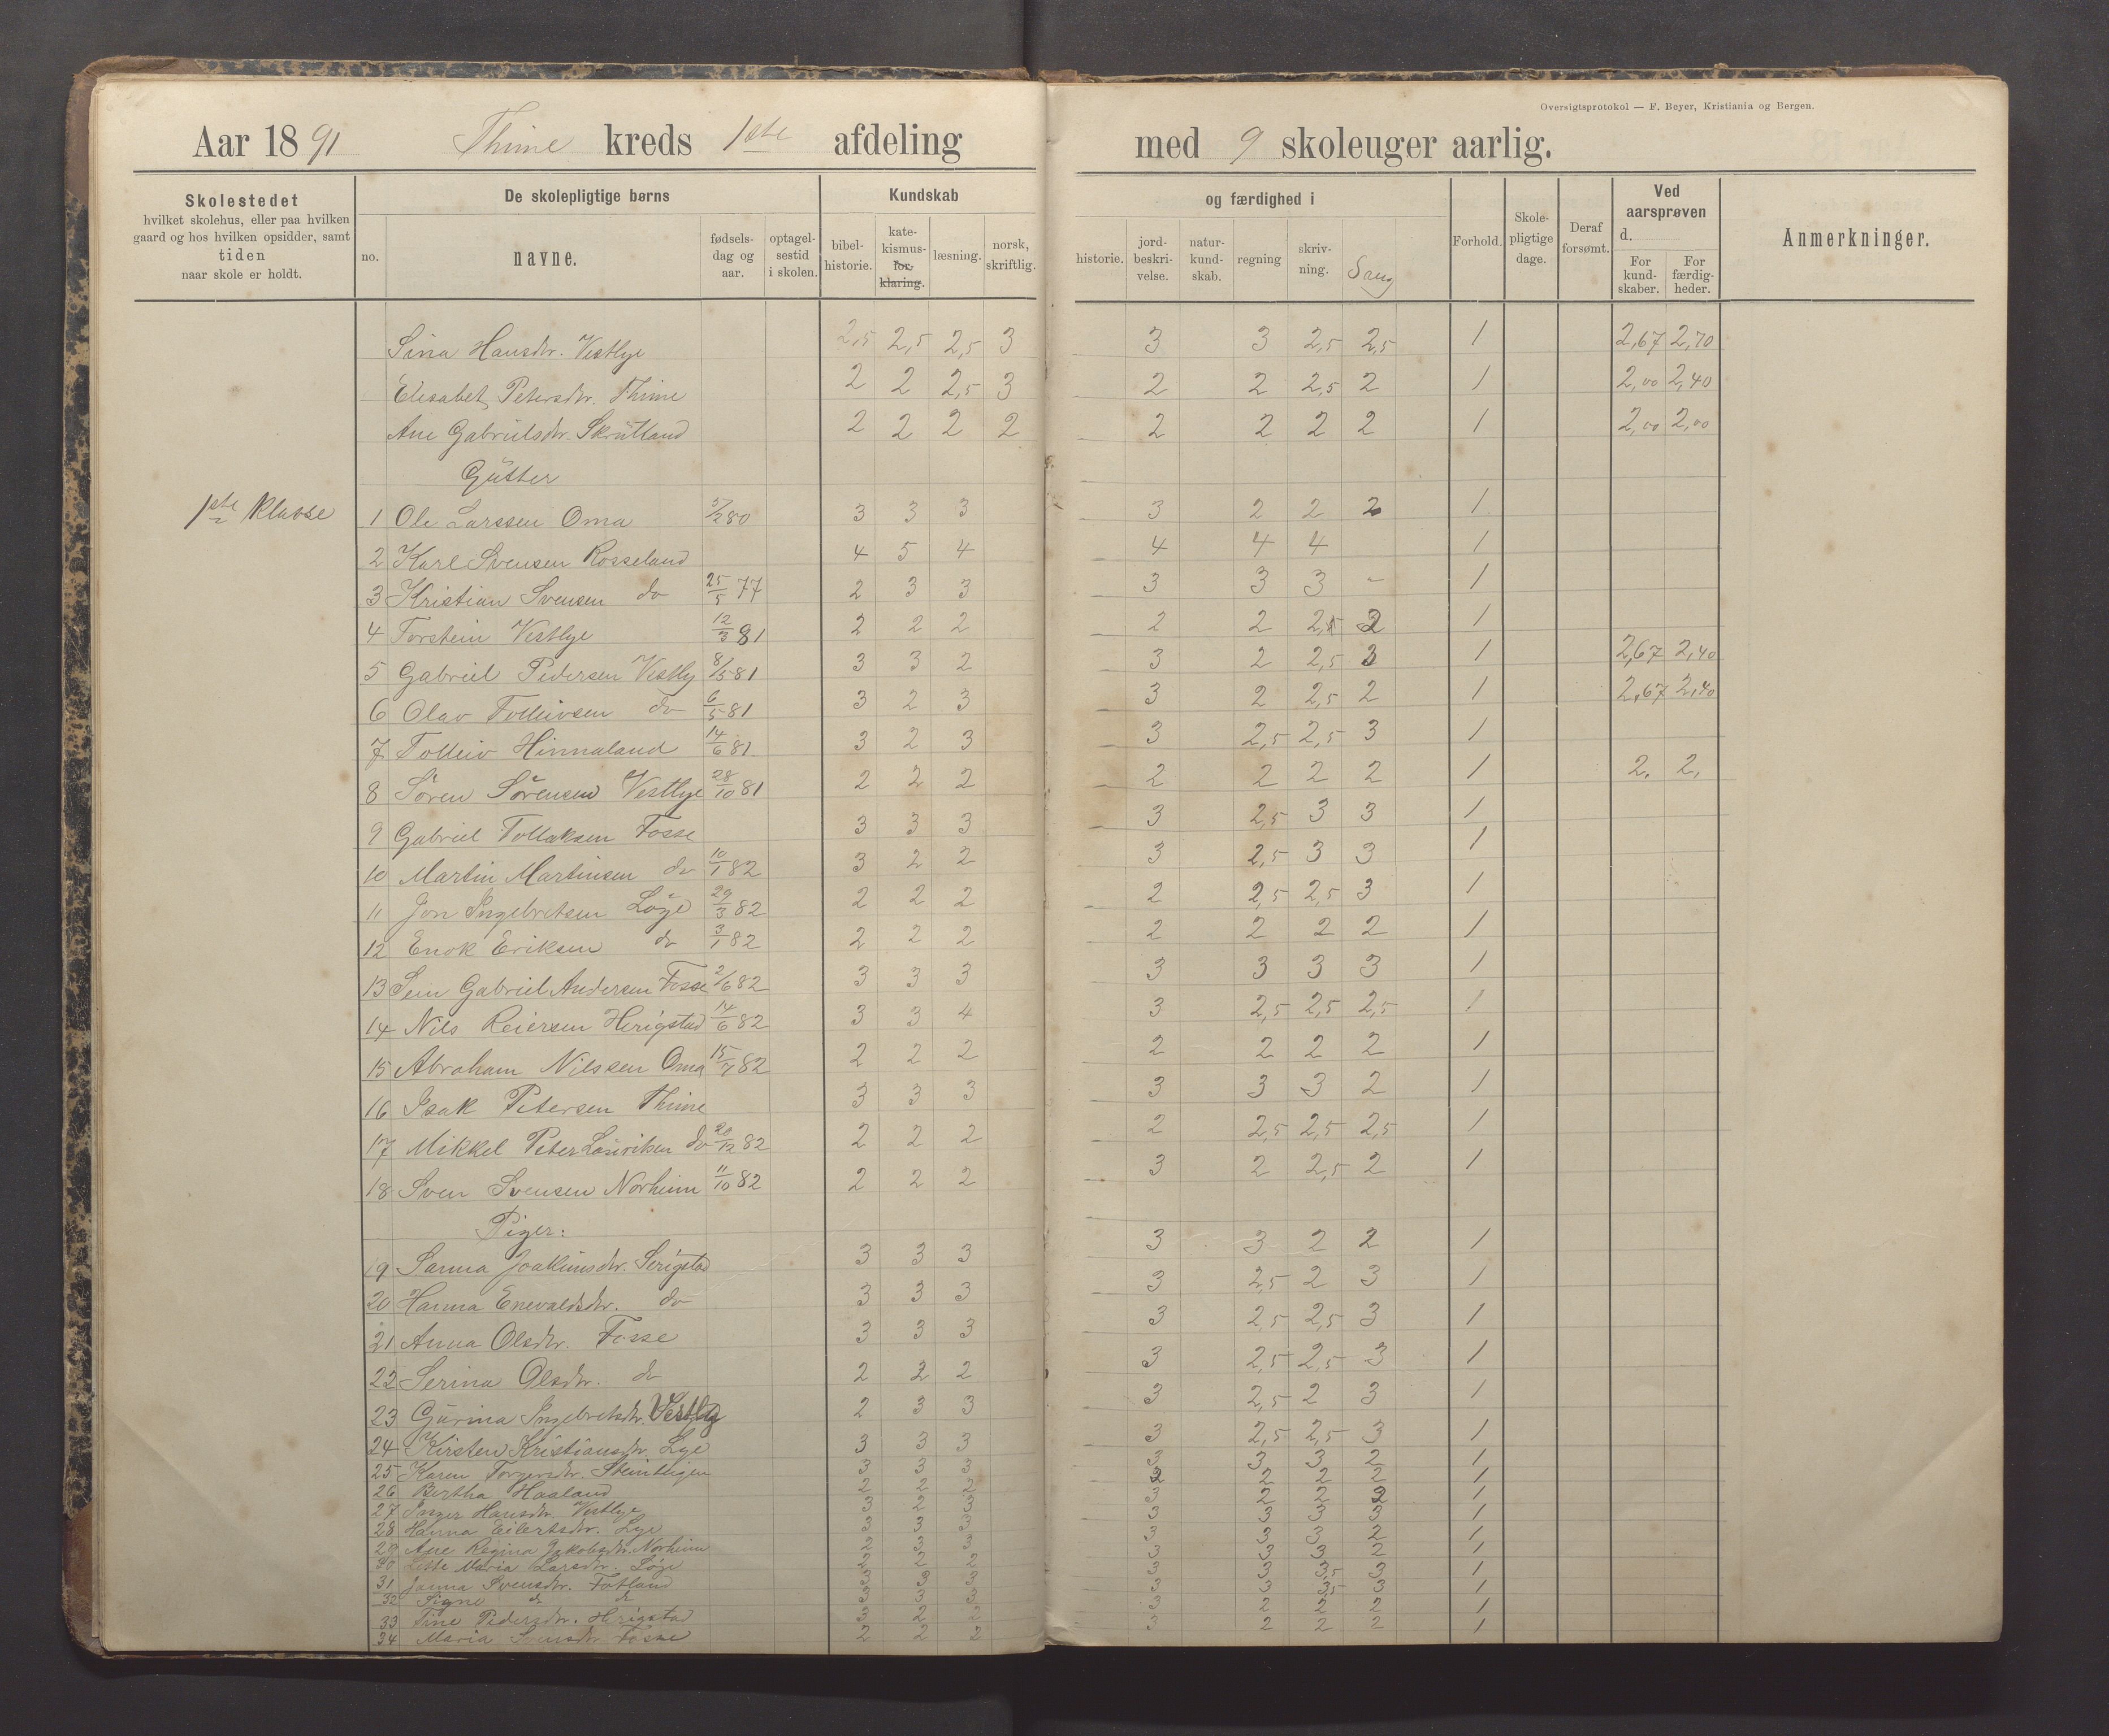 Oversigtsprotokol — F. Beyer, Kristiania og Bergen.
Aar 1891 Thime kreds 1ste afdeling med 9 skoleuger aarlig.
Skolestedet hvilket skolehus, eller paa hvilken gaard og hos hvilken opsidder, samt tiden naar skole er holdt.
De skolepligtige børns
no. navne. fødsels-dag og aar. optagel-sestid i skolen.
Kundskab og færdighed i
bibel-historie. kate-kismus-for-klaring. læsning. norsk, skriftlig. historie. jord-beskri-velse. natur-kund-skab. regning skriv-ning. Sang
Forhold. Skole-pligtige dage. Deraf forsømt.
Ved aarsprøven d.
For kund-skaber. For færdig-heder.
Anmerkninger.
Sina Hansdtr. Vestlye 2,5 2,5 2,5 3 3 3 2,5 2,5 1 2,67 2,70
Elisabet Petersdtr. Thime 2 2 2,5 3 2 2 2,5 2 1 2,00 2,40
Ane Gabrielsdtr. Skrutland 2 2 2 2 2 2 2 2 1 2,00 2,00
Gutter
1ste Klasse 1 Ole Larssen Oma 5/2 80 3 3 3 3 2 2 2 1
2 Karl Svensen Rosseland 4 5 4 4 4 4 1
3 Kristian Svensen do 25/5 77 2 3 3 3 3 3 - 1
4 Torstein Vestlye 12/3 81 2 2 2 2 2 2,5 1
5 Gabriel Pedersen Vestly 8/5 81 3 3 2 3 2 2,5 3 1 2,67 2,40
6 Olav Tolleivsen do 6/5 81 3 2 3 3 2 2,5 2 1 2,67 2,40
7 Tolleiv Hinnaland 14/6 81 3 2 3 3 2,5 2,5 3 1
8 Sören Sörensen Vestlye 28/10 81 2 2 2 2 2 2 2 1 2, 2,
9 Gabriel Tollaksen Fosse 3 3 3 3 2,5 3 3 1
10 Martin Martinsen do 10/1 82 3 2 2 3 2,5 3 3 1
11 Jon Ingebretsen Löge 29/3 82 2 2 2 2 2,5 2,5 3 1
12 Enok Eriksen do 3/1 82 2 2 2 2 2 2 2 1
13 Sein Gabriel Andersen Fosse 2/6 82 3 3 3 3 3 3 3 1
14 Nils Reiersen Herigstad 14/6 82 3 3 4 3 2,5 2,5 2,5 1
15 Abraham Nilssen Oma 15/7 82 2 2 2 2 2 2 2 1
16 Isak Petersen Thime 3 3 3 3 3 3 2 1
17 Mikkel Peter Lauriksen do 20/12 82 2 2 2 2 2,5 2,5 2,5 1
18 Sven Svensen Norheim 11/10 82 2 2 2 3 2 2,5 2 1
Piger:
19 Sanna Joakimsdtr. Serigstad 3 3 3 3 3 2 2 1
20 Hanna Enevaldsdtr. do 3 3 3 3 2,5 2 3 1
21 Anna Olsdtr. Fosse 3 3 3 3 2,5 2,5 3 1
22 Serina Olsdtr. do 2 2 2 3 2,5 2,5 3 1
23 Gurina Ingebretsdtr. Vestly 2 3 3 3 2,5 2 3 1
24 Kirsten Kristiansdtr. Lye 3 3 3 3 2,5 2,5 3 1
25 Karen Torgersdtr. 3 3 3 3 3 3 2 1
26 Bertha Haaland 2 2 2 2 2 2 1
27 Inger Hansdtr. Vestlye 3 2 3 3 2 2 1
28 Hanna Eilertsdtr. Lye 3 3 3 3 3 3 3 1
29 Ane Regina Jakobsdtr. Norheim 2 3 3 3 3 3 2 1
30 Maria Larsdtr. Löge 2 2 2 3 3 3 2 1
31 Janna Svensdtr. Fotland 3 3 3 3 3 3,5 3 1
32 Signe do do 3 3 3 3 3 3,5 3 1
33 Tine Pedersdtr. Herigstad 3 2 2 3 2 2 2 1
34 Maria Svensdtr. Fosse 2 2 2 3 2 2 2 1